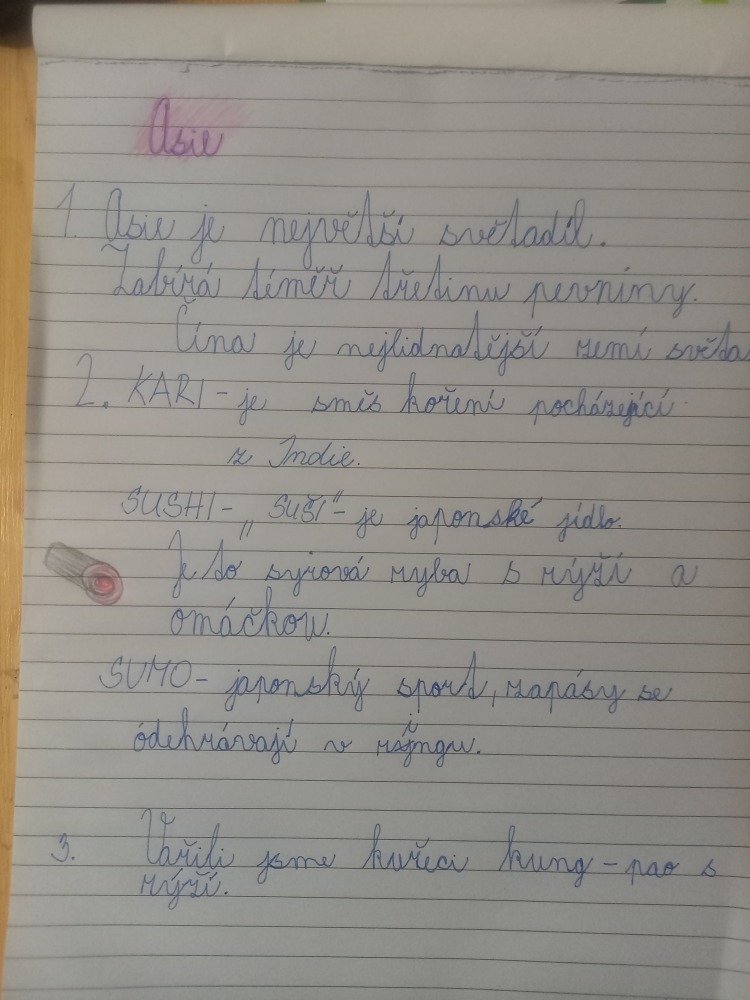 Asie
1. Asie je největší světadíl.
Zabírá téměř třetinu pevniny.
Čína je nejlidnatější zemí světa
2. KARI - je směs koření pocházející
z Indie.
SUSHI - „SUŠI" - je japonské jídlo.
Je to syrová ryba s rýží a
omáčkou.
SUMO - japonský sport, zápasy se
odehrávají v ringu.
3. Vařili jsme kuřecí kung - pao s
rýží.